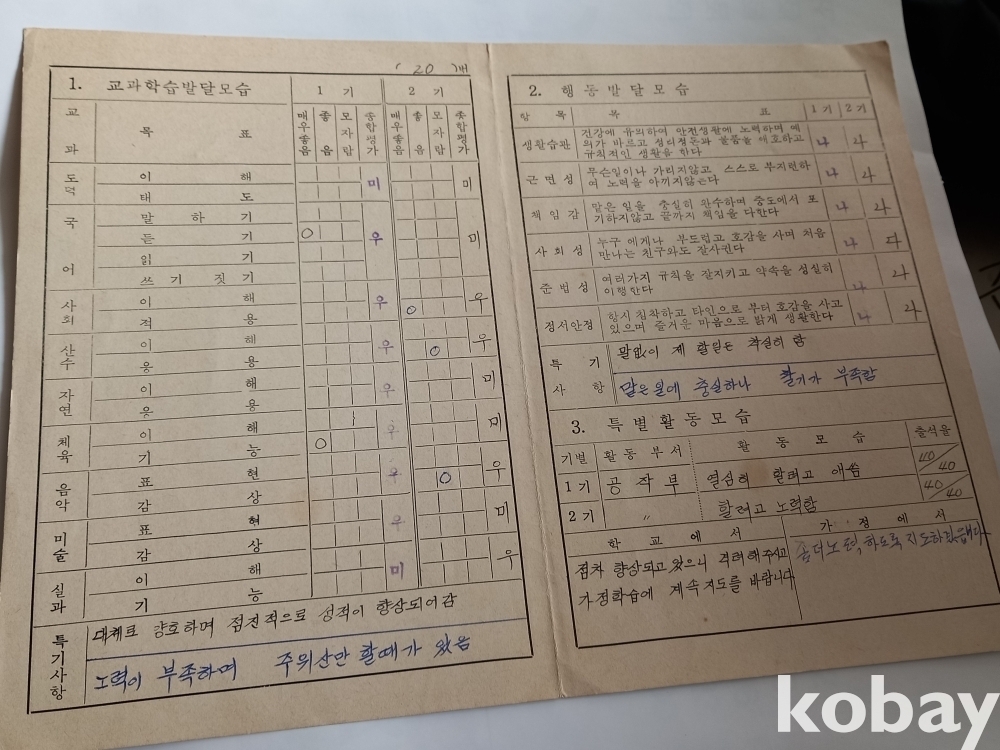 ( 20 )번
1. 교과학습발달모습
1 기
2 기
교
과
목 표
매우좋음
좋음
모자람
종합평가
매우좋음
좋음
모자람
종합평가
도덕
이 해
태 도
미
미
국
어
말 하 기
듣 기
읽 기
쓰 기 짓 기
우
미
사회
이 해
적 용
우
우
산수
이 해
응 용
우
우
자연
이 해
응 용
우
미
체육
이 해
기 능
우
미
음악
표 현
감 상
우
우
미술
표 현
감 상
우
미
실과
이 해
기 능
미
우
특기사항
대체로 양호하며 점진적으로 성적이 향상되어감
노력이 부족하며 주위산만 할때가 있음
2. 행동발달모습
항 목
목 표
1기
2기
생활습관
건강에 유의하여 안전생활에 노력하며 예
의가 바르고 정리정돈과 물품을 애호하고
규칙적인 생활을 한다
나
나
근 면 성
무슨일이나 가리지않고 스스로 부지런하
여 노력을 아끼지않는다
나
나
책 임 감
맡은 일을 충실히 완수하며 중도에서 포
기하지않고 끝까지 책임을 다한다
나
나
사 회 성
누구 에게나 부드럽고 호감을 사며 처음
만나는 친구와도 잘사귄다
나
다
준 법 성
여러가지 규칙을 잘지키고 약속을 성실히
이행한다
나
나
정서안정
항시 침착하고 타인으로 부터 호감을 사고
있으며 즐거운 마음으로 밝게 생활한다
나
나
특 기
사 항
말없이 제 할일은 착실히 함
맡은일에 충실하나 활기가 부족함
3. 특별활동모습
기별
활동부서
활 동 모 습
출석율
1기
공 작 부
열심히 할려고 애씀
40/40
2기
〃
할려고 노력함
40/40
학 교 에 서
가 정 에 서
점차 향상되고 있으니 격려해주시고
가정학습에 계속 지도를 바랍니다
좀더노력하도록 지도하겠읍니다
kobay